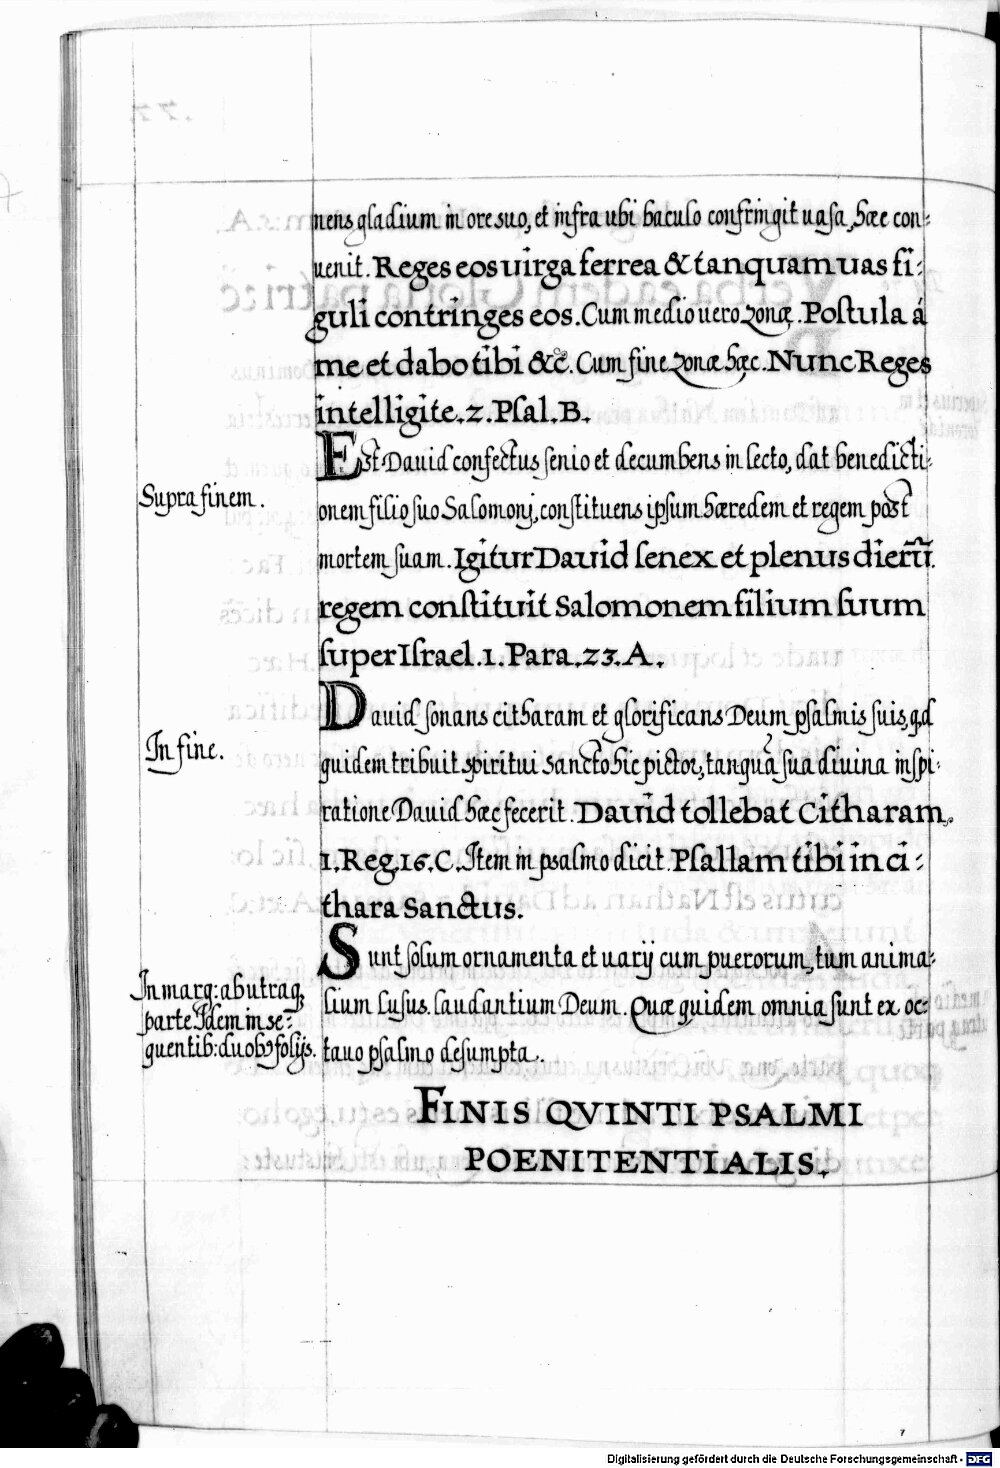 nens gladium in ore suo, et infra ubi baculo confringit uasa, hæc con-
uenit. Reges eos uirga ferrea & tanquam uas fi-
guli contringes eos. Cum medio uero zonæ. Postula á
me et dabo tibi &c̃. Cum fine zonæ hæc. Nunc Reges
intelligite. 2. Psal. B.
Supra finem.
Est David confectus senio et decumbens in lecto, dat benedicti-
onem filio suo Salomonj, constituens ipsum hæredem et regem post
mortem suam. Igitur David senex et plenus dierũ.
regem constituit Salomonem filium suum
super Israel. 1. Para. 23. A.
In fine.
David sonans citharam et glorificans Deum psalmis suis, qd
quidem tribuit spiritui Sancto hic pictor, tanquã sua diuina inspi-
ratione David hæc fecerit. David tollebat Citharam.
1. Reg. 16. C. Item in psalmo dicit. Psallam tibi in ci-
thara Sanctus.
In marg: ab utraq,
parte. Idem in se-
quentib: duob9 folijs.
Sunt solum ornamenta et uarij cum puerorum, tum anima-
lium lusus. laudantium Deum. Quæ quidem omnia sunt ex oc-
tauo psalmo desumpta.
FINIS QVINTI PSALMI
POENITENTIALIS.
Digitalisierung gefördert durch die Deutsche Forschungsgemeinschaft - DFG